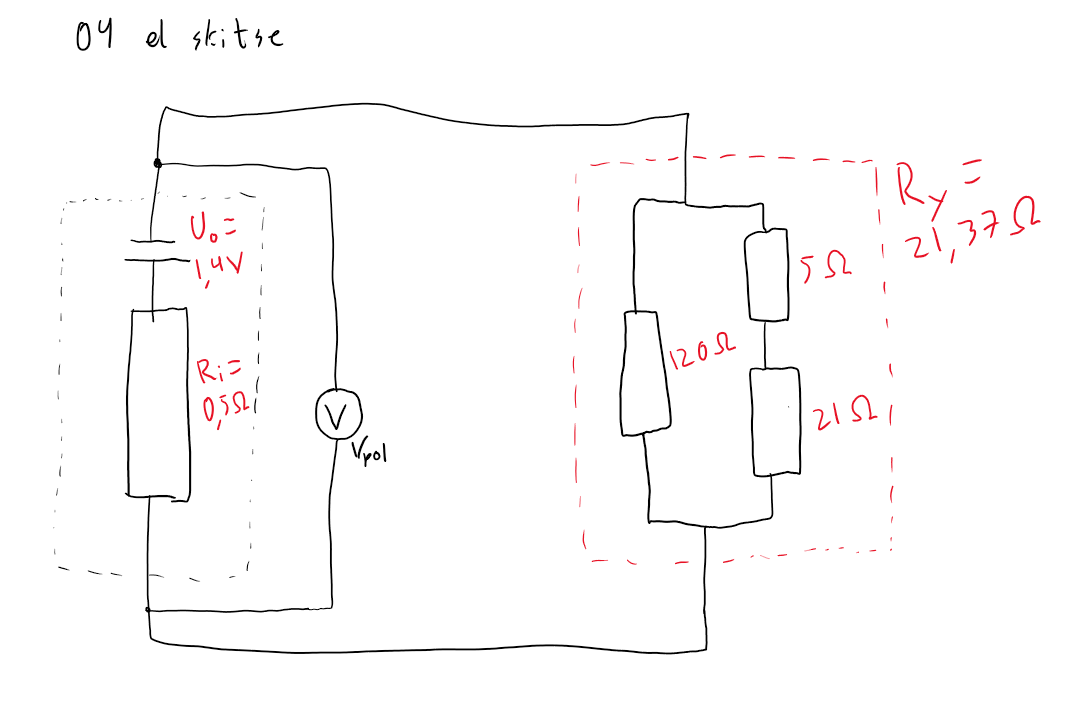 04 el skitse
U₀ =
1,4V
Ri =
0,5Ω
V
Vpol
120Ω
5Ω
21Ω
Ry =
21,37Ω